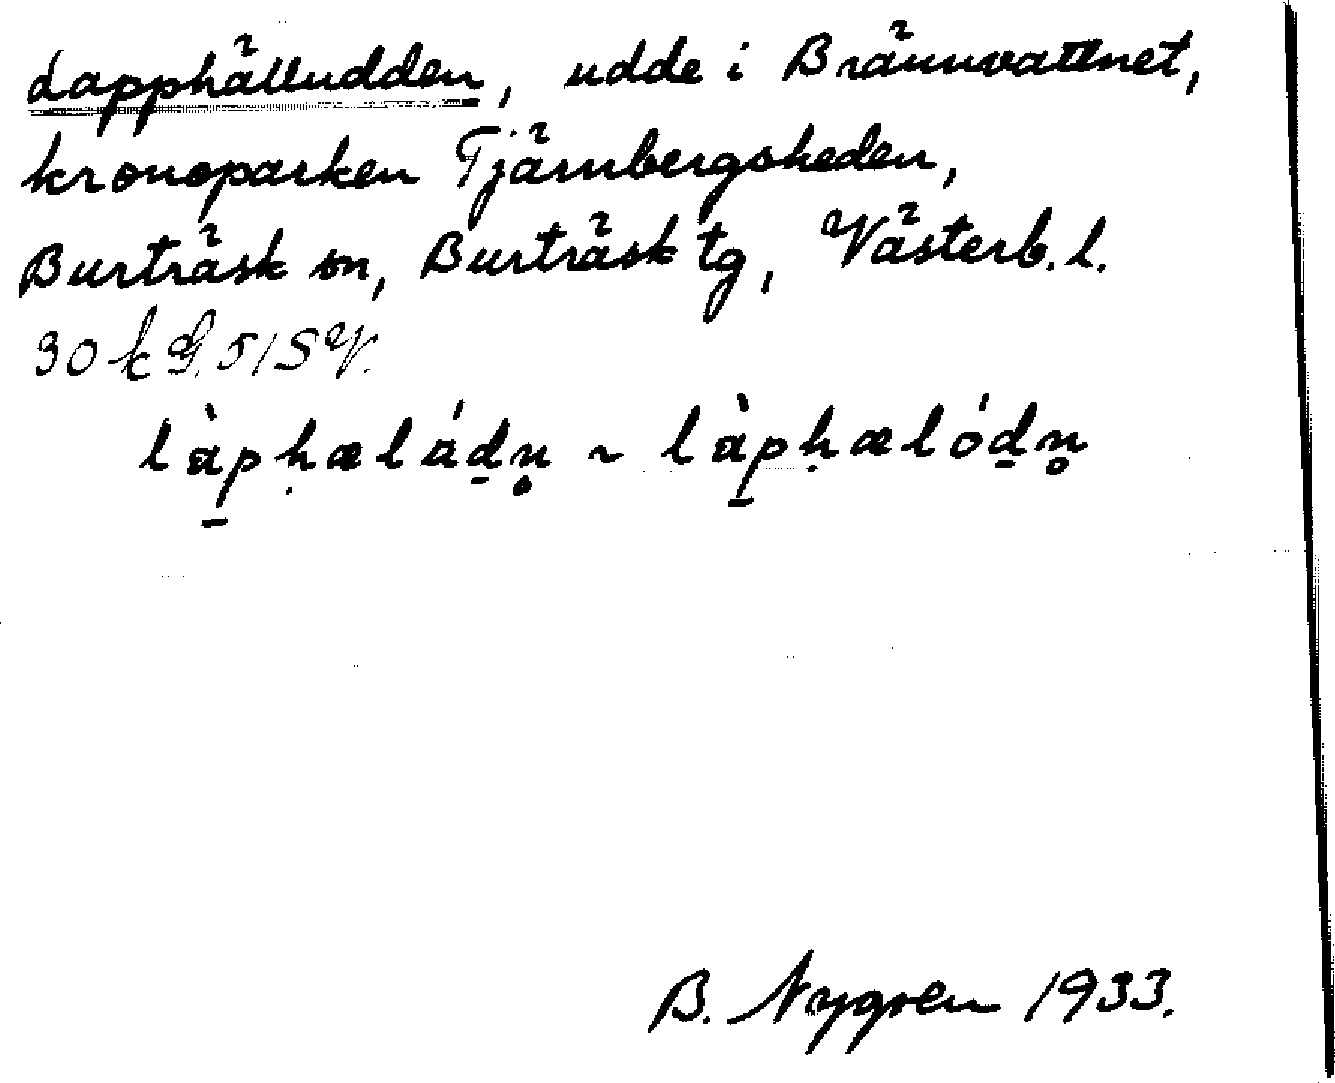 Lapphälludden, udde i Brännvattnet,
kronoparken Tjärnbergsheden,
Burträsk sn, Burträsk tg, Västerb. l.
30 k G. 51 SV.
làpḥælád̲n̥ ~ làpḥælód̲n̥
B. Nygren 1933.